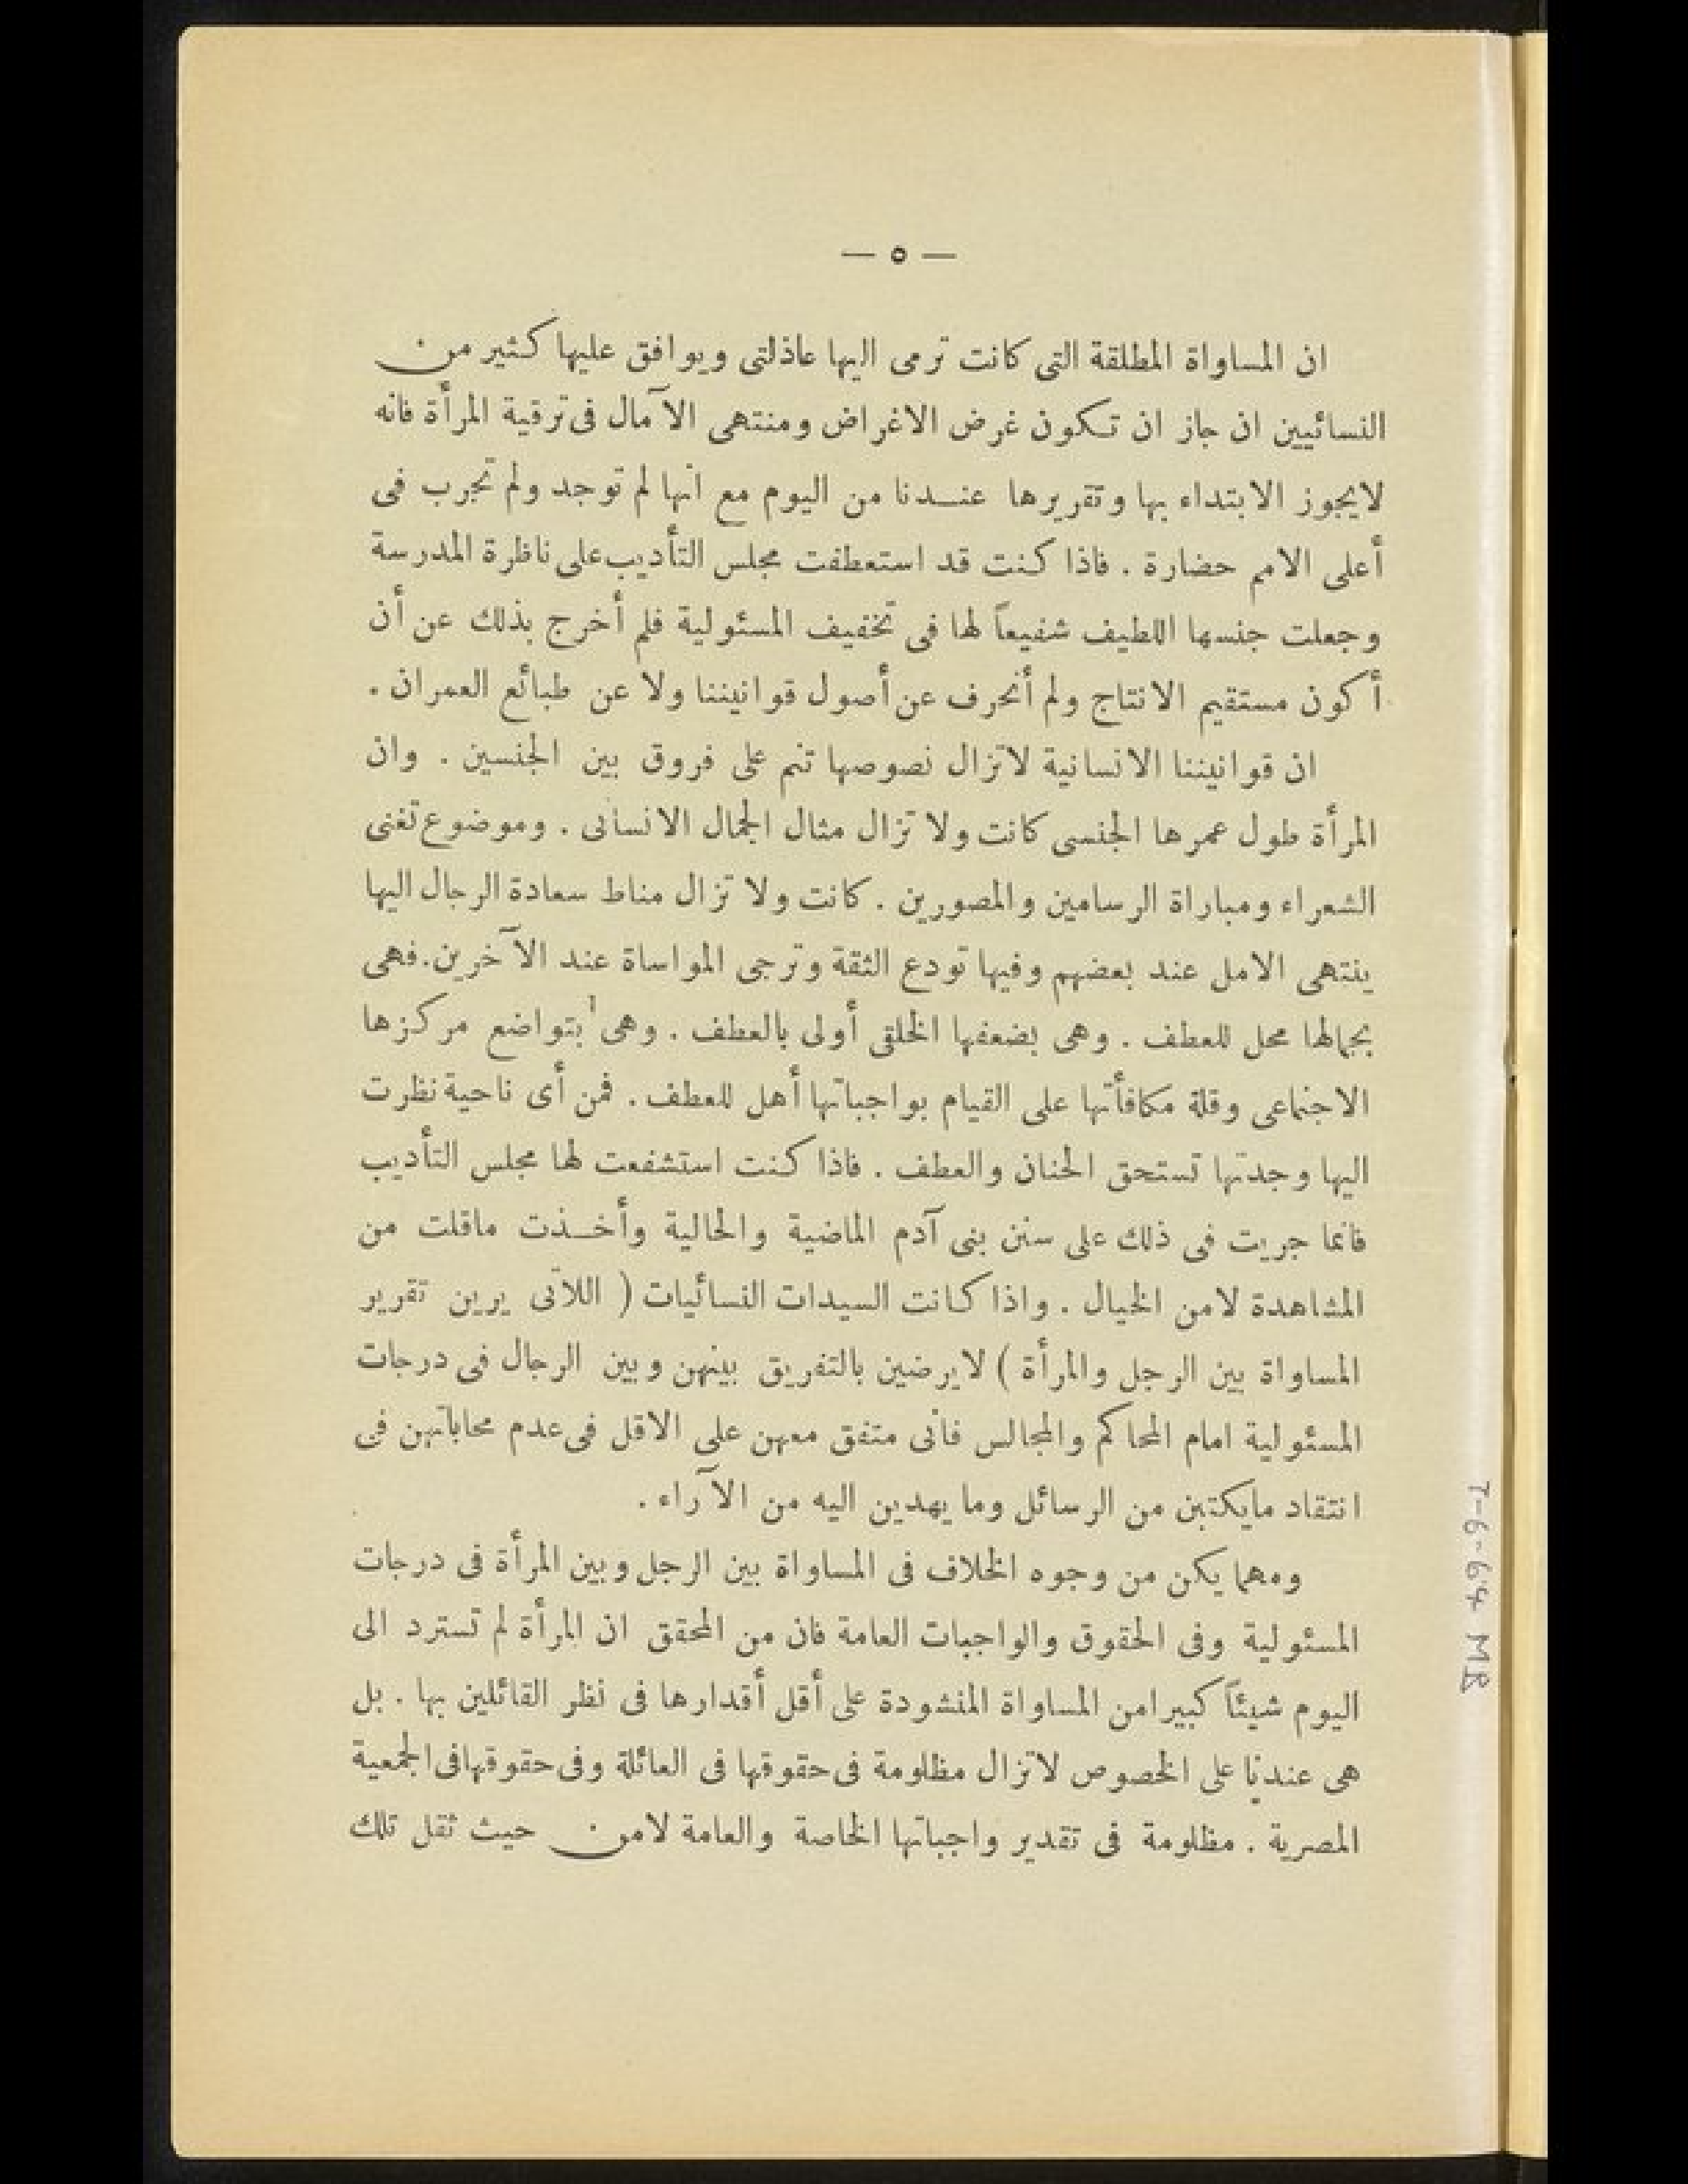 — ٥ —
ان المساواة المطلقة التى كانت ترمى اليها عاذلتى ويوافق عليها كثير من
النسائيين ان جاز ان تكون غرض الاغراض ومنتهى الآمال فى ترقية المرأة فانه
لايجوز الابتداء بها وتقريرها عندنا من اليوم مع انها لم توجد ولم تجرب فى
أعلى الامم حضارة . فاذا كنت قد استعطفت مجلس التأديب على ناظرة المدرسة
وجعلت جنسها اللطيف شفيعاً لها فى تخفيف المسئولية فلم أخرج بذلك عن أن
أكون مستقيم الانتاج ولم أنحرف عن أصول قوانيننا ولا عن طبائع العمران .
ان قوانيننا الانسانية لاتزال نصوصها تنم على فروق بين الجنسين . وان
المرأة طول عمرها الجنسى كانت ولا تزال مثال الجمال الانسانى . وموضوع تغنى
الشعراء ومباراة الرسامين والمصورين . كانت ولا تزال مناط سعادة الرجال اليها
ينتهى الامل عند بعضهم وفيها تودع الثقة وترجى المواساة عند الآخرين. فهى
بجمالها محل للعطف . وهى بضعفها الخلقى أولى بالعطف . وهى بتواضع مركزها
الاجتماعى وقلة مكافأتها على القيام بواجباتها أهل للعطف . فمن أى ناحية نظرت
اليها وجدتها تستحق الحنان والعطف . فاذا كنت استشفعت لها مجلس التأديب
فانما جريت فى ذلك على سنن بنى آدم الماضية والحالية وأخذت ماقلت من
المشاهدة لامن الخيال . واذا كانت السيدات النسائيات ( اللاتى يرين تقرير
المساواة بين الرجل والمرأة ) لايرضين بالتفريق بينهن وبين الرجال فى درجات
المسئولية امام المحاكم والمجالس فانى متفق معهن على الاقل فى عدم محاباتهن فى
انتقاد مايكتبن من الرسائل وما يهدين اليه من الآراء .
ومهما يكن من وجوه الخلاف فى المساواة بين الرجل وبين المرأة فى درجات
المسئولية وفى الحقوق والواجبات العامة فان من المحقق ان المرأة لم تسترد الى
اليوم شيئاً كبيرامن المساواة المنشودة على أقل أقدارها فى نظر القائلين بها . بل
هى عندنا على الخصوص لاتزال مظلومة فى حقوقها فى العائلة وفى حقوقها فى الجمعية
المصرية . مظلومة فى تقدير واجباتها الخاصة والعامة لامن حيث ثقل تلك
T-6-64 MR